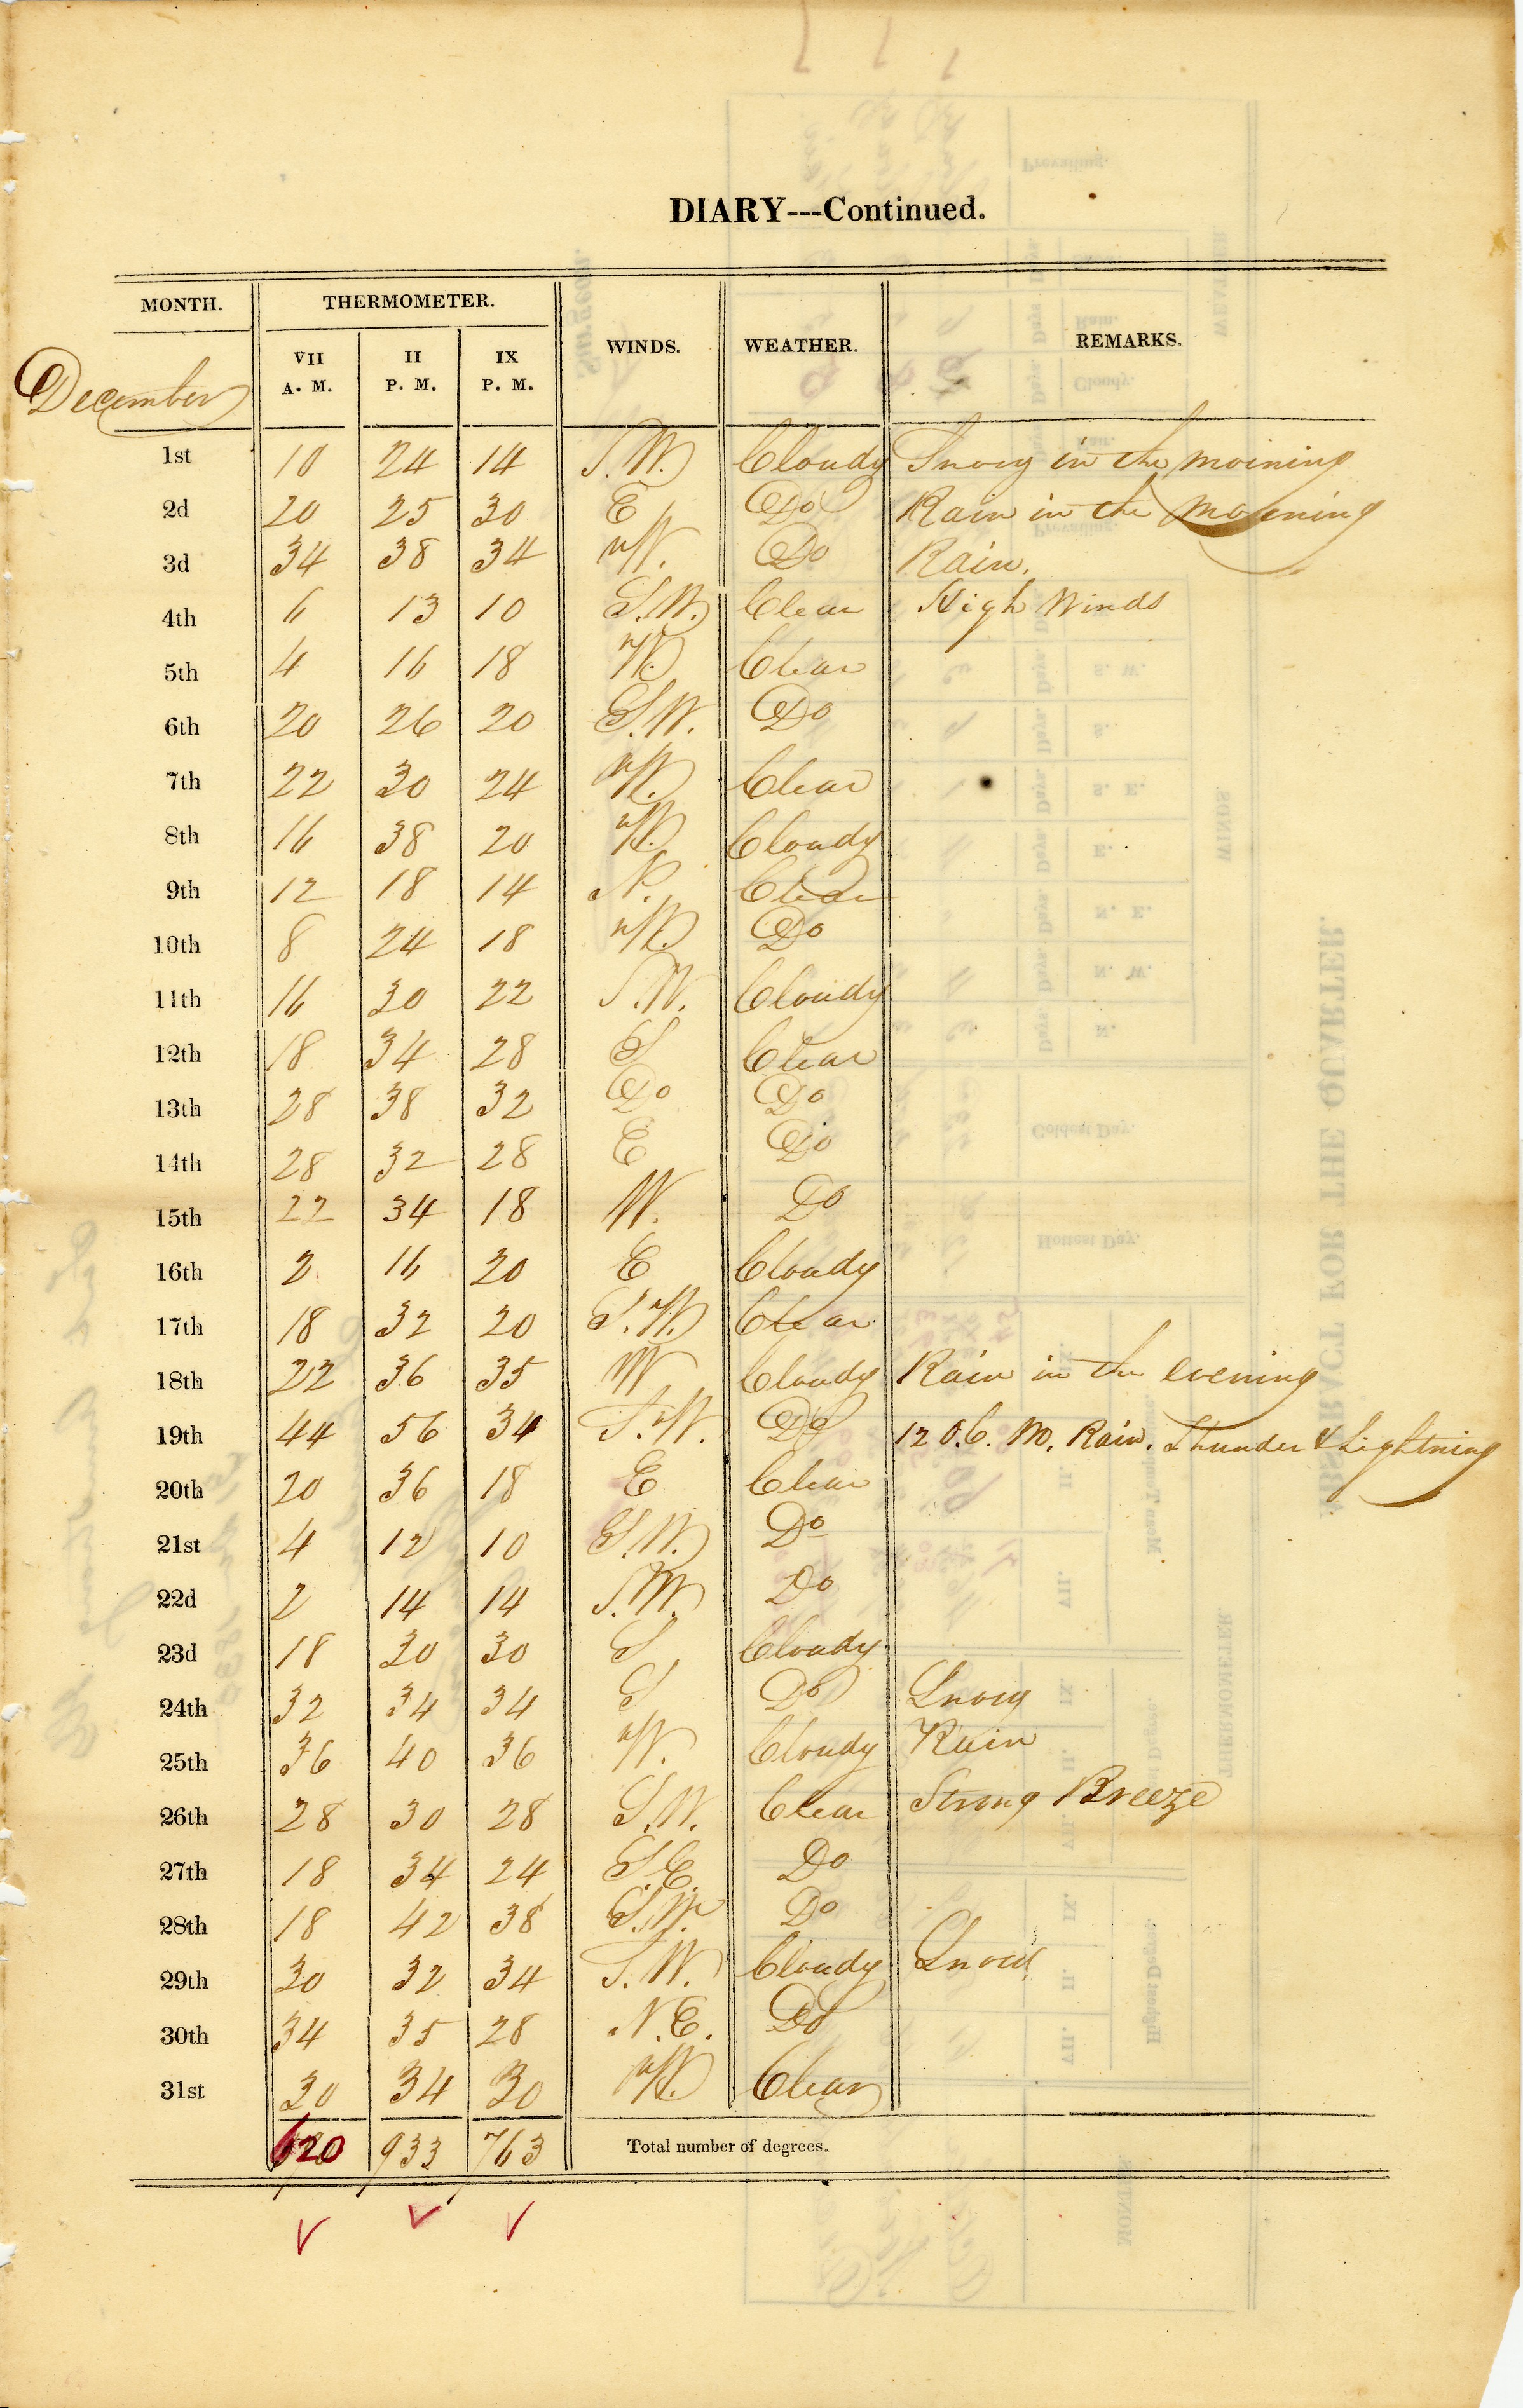 DIARY---Continued.
MONTH. THERMOMETER. WINDS. WEATHER. REMARKS.
VII A. M. II P. M. IX P. M.
December
1st 10 24 14 S.W. Cloudy Snowy in the morning
2d 20 25 30 E Do Rain in the morning
3d 34 38 34 W. Do Rain.
4th 6 13 10 S.W. Clear High Winds
5th 4 16 18 W. Clear
6th 20 26 20 S.W. Do
7th 22 30 24 W. Clear
8th 16 38 20 W. Cloudy
9th 12 18 14 N. Clear
10th 8 24 18 W. Do
11th 16 30 22 S.W. Cloudy
12th 18 34 28 S Clear
13th 28 38 32 Do Do
14th 28 32 28 E Do
15th 22 34 18 W. Do
16th 2 16 20 E Cloudy
17th 18 32 20 S.W. Clear
18th 22 36 35 W Cloudy Rain in the evening
19th 44 56 34 S.W. Do 12 O.C. M. Rain. Thunder & Lightning
20th 20 36 18 E Clear
21st 4 12 10 S.W. Do
22d 2 14 14 S.W. Do
23d 18 30 30 S Cloudy
24th 32 34 34 S Do Snowy
25th 36 40 36 W. Cloudy Rain
26th 28 30 28 S.W. Clear Strong Breeze
27th 18 34 24 S.E. Do
28th 18 42 38 S.W. Do
29th 30 32 34 S.W. Cloudy Snow
30th 34 35 28 N.E. Do
31st 30 34 30 W. Clear
620 933 763 Total number of degrees.